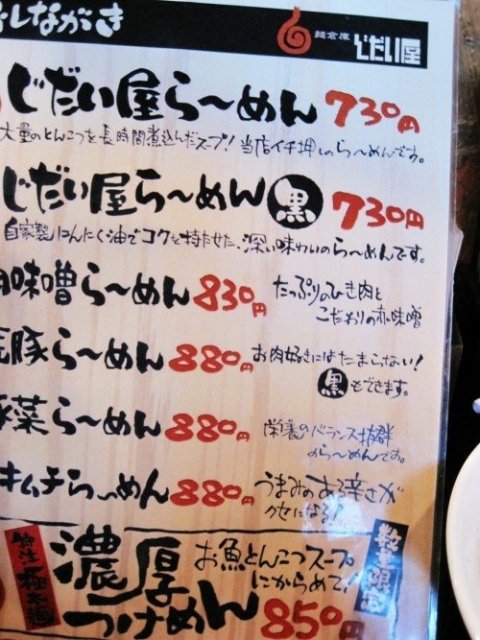 しながき
麺倉庫 じだい屋
じだい屋ら〜めん 730円
大量のとんこつを長時間煮込んだスープ！当店イチ押しのら〜めんです。
じだい屋ら〜めん 黒 730円
自家製にんにく油でコクを持たせた、深い味わいのら〜めんです。
味噌ら〜めん 830円
たっぷりのひき肉と
こだわりの赤味噌
豚ら〜めん 880円
お肉好きにはたまらない！
黒もできます。
菜ら〜めん 880円
栄養のバランス抜群
のら〜めんです。
キムチら〜めん 880円
うまみのある辛さが
クセになる！
特注極太麺
濃厚
つけめん 850円
お魚とんこつスープ
にからめて！
数量限定